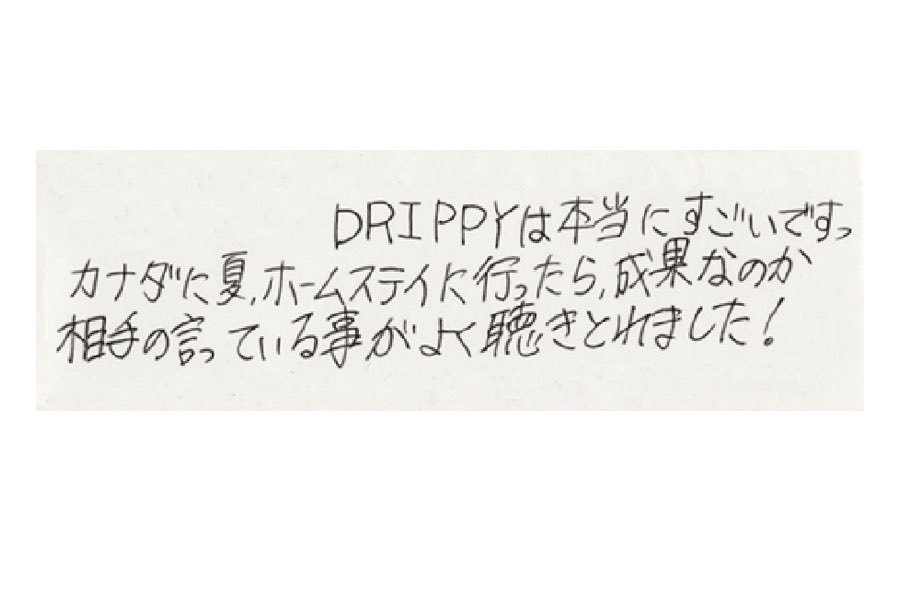 DRIPPYは本当にすごいですっ
カナダに夏,ホームステイに行ったら,成果なのか
相手の言っている事がよく聴きとれました!